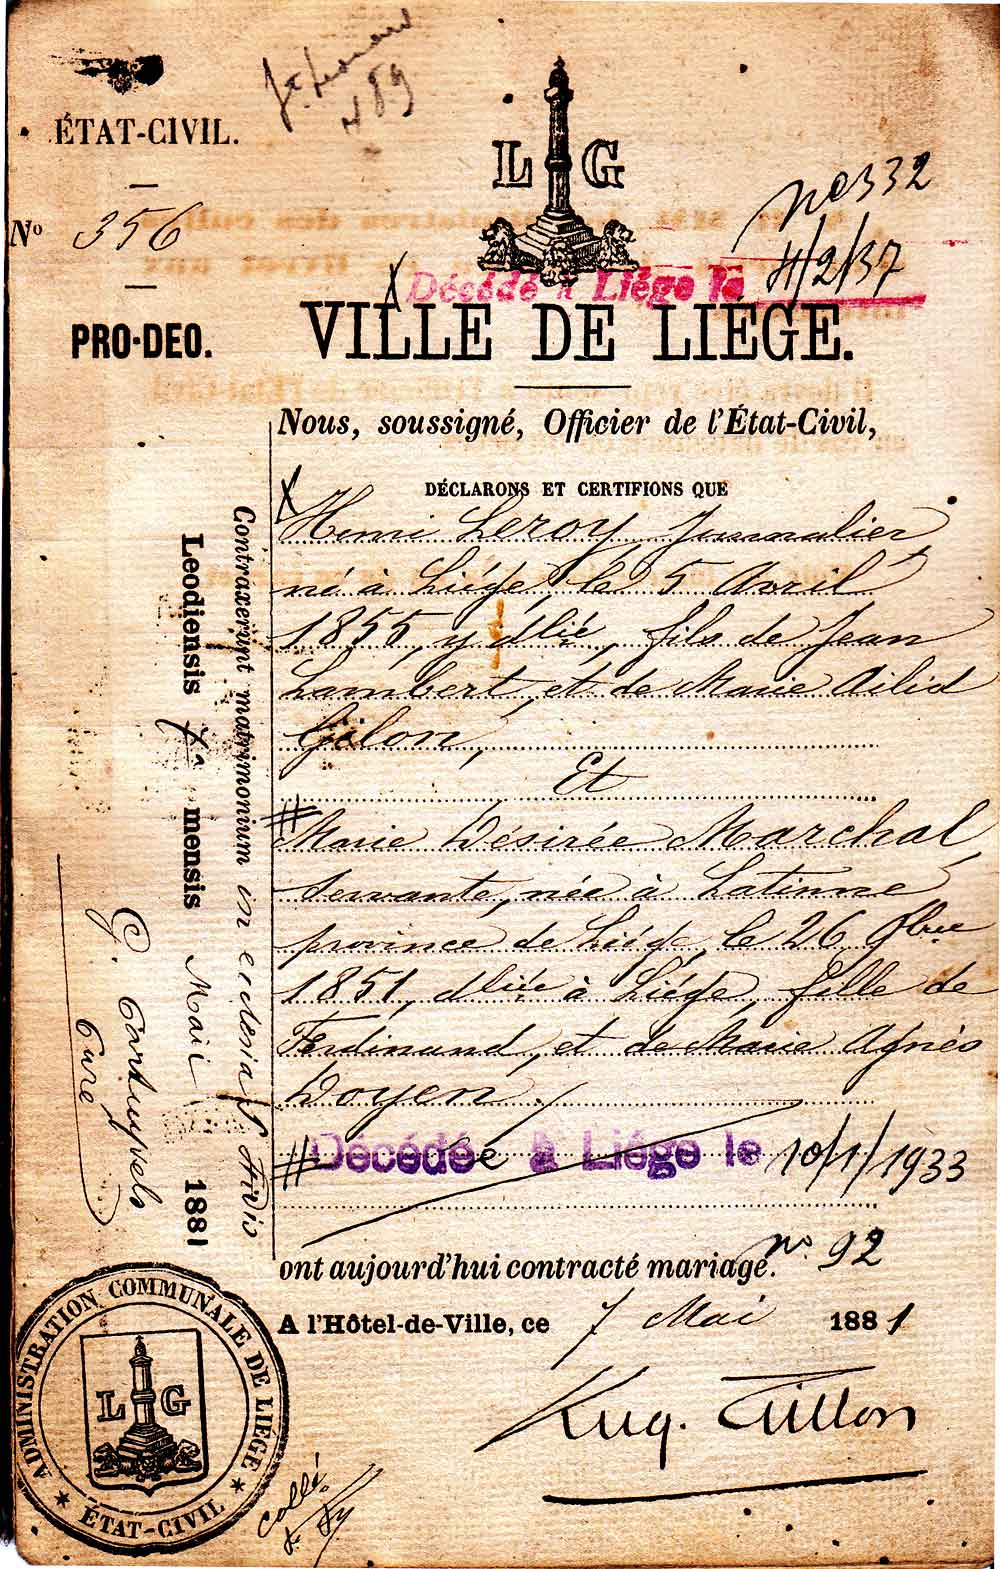 St Léonard
489
ÉTAT-CIVIL.
L G
Nº 356
nº 332
4/2/37
X Décédé à Liége le
PRO-DEO.
VILLE DE LIÉGE.
Nous, soussigné, Officier de l'État-Civil,
DÉCLARONS ET CERTIFIONS QUE
X Henri Leroy Journalier
né à Liége, le 5 Avril
1855, y dlié, fils de Jean
Lambert, et de Marie
Gilon,
Et
# Marie Désirée Marchal,
servante, née à Latinne
province de Liége, le 26 9bre
1851, dliée à Liége, fille de
Ferdinand, et de Marie Agnès
Doyen.
# Décédée à Liége le 10/1/1933
nº 92
ont aujourd'hui contracté mariage.
A l'Hôtel-de-Ville, ce 7 Mai 1881
Contraxerunt matrimonium in ecclesia
Leodiensis 7a mensis Maii 1881
G.
Curé
ADMINISTRATION COMMUNALE DE LIÉGE
L G
* ÉTAT-CIVIL *
Collé